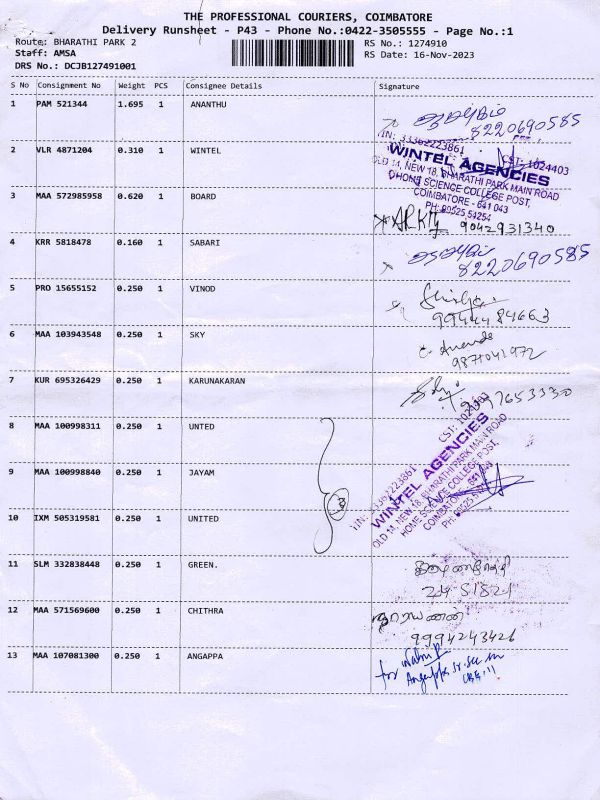 THE PROFESSIONAL COURIERS, COIMBATORE
Delivery Runsheet - P43 - Phone No.:0422-3505555 - Page No.:1
Route: BHARATHI PARK 2 RS No.: 1274910
Staff: AMSA RS Date: 16-Nov-2023
DRS No.: DCJB127491001
S No Consignment No Weight PCS Consignee Details Signature
1 PAM 521344 1.695 1 ANANTHU
8220690585
2 VLR 4871204 0.310 1 WINTEL
TIN: 33362223861 CST: 1024403
WINTEL AGENCIES
OLD 14, NEW 18, BHARATHI PARK MAIN ROAD
HOME SCIENCE COLLEGE POST,
COIMBATORE - 641 043
3 MAA 572985958 0.620 1 BOARD
9042931340
4 KRR 5818478 0.160 1 SABARI
8220690585
5 PRO 15655152 0.250 1 VINOD
9944484663
6 MAA 103943548 0.250 1 SKY
9871041972
7 KUR 695326429 0.250 1 KARUNAKARAN
8 MAA 100998311 0.250 1 UNTED
9 MAA 100998840 0.250 1 JAYAM
3
TIN: 33362223861 CST: 1024403
WINTEL AGENCIES
OLD 14, NEW 18, BHARATHI PARK MAIN ROAD
HOME SCIENCE COLLEGE POST,
10 IXM 505319581 0.250 1 UNITED
11 SLM 332838448 0.250 1 GREEN.
12 MAA 571569600 0.250 1 CHITHRA
நாராயணன்
9994243426
13 MAA 107081300 0.250 1 ANGAPPA
for
Angappa Sr. Sec.
CBE-11